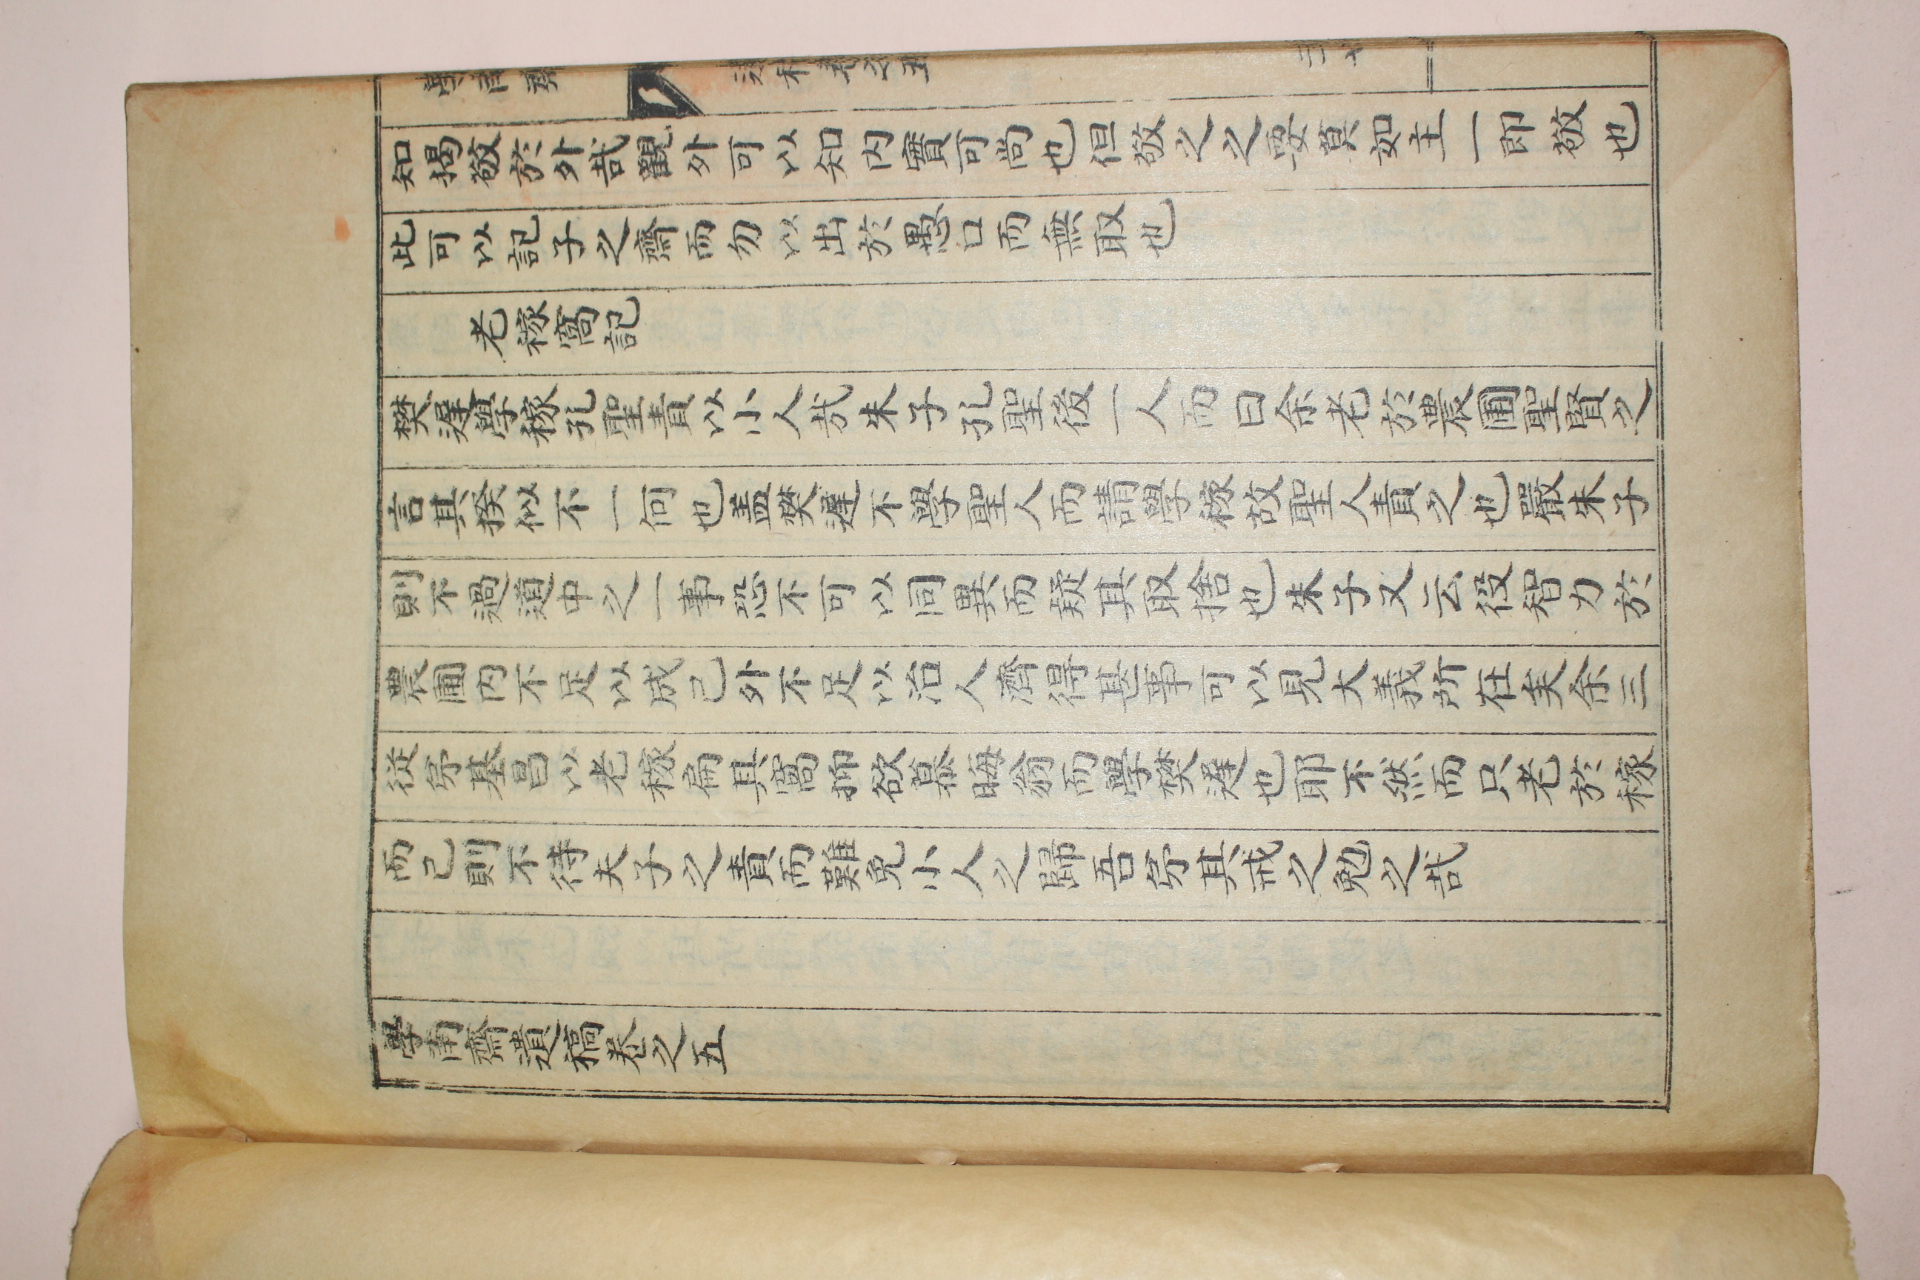 學南齋 遺稿卷之五 三七
知揭敬於外哉觀外可以知內實可尚也但敬之之要莫如主一卽敬也
此可以記子之齋而勿以出於愚口而無取也
老稼窩記
樊遲學稼孔聖責以小人哉朱子孔聖後一人而曰余老於農圃聖賢之
言其揆似不一何也盖樊遲不學聖人而請學稼故聖人責之也嚴朱子
則不過道中之一事恐不可以同異而疑其取捨也朱子又云役智力於
農圃內不足以成己外不足以治人濟得甚事可以見大義所在矣余三
從弟基昌以老稼扁其窩抑欲慕晦翁而學樊遲也耶不然而只老於稼
而已則不待夫子之責而難免小人之歸吾弟其戒之勉之哉
學南齋遺稿卷之五